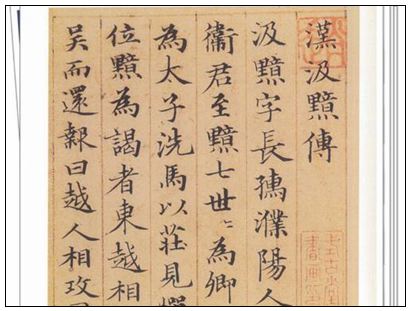 漢汲黯傳
汲黯字長孺濮陽人
衛君至黯七世〻為卿
為太子洗馬以莊見憚
位黯為謁者東越相
吴而還報曰越人相攻